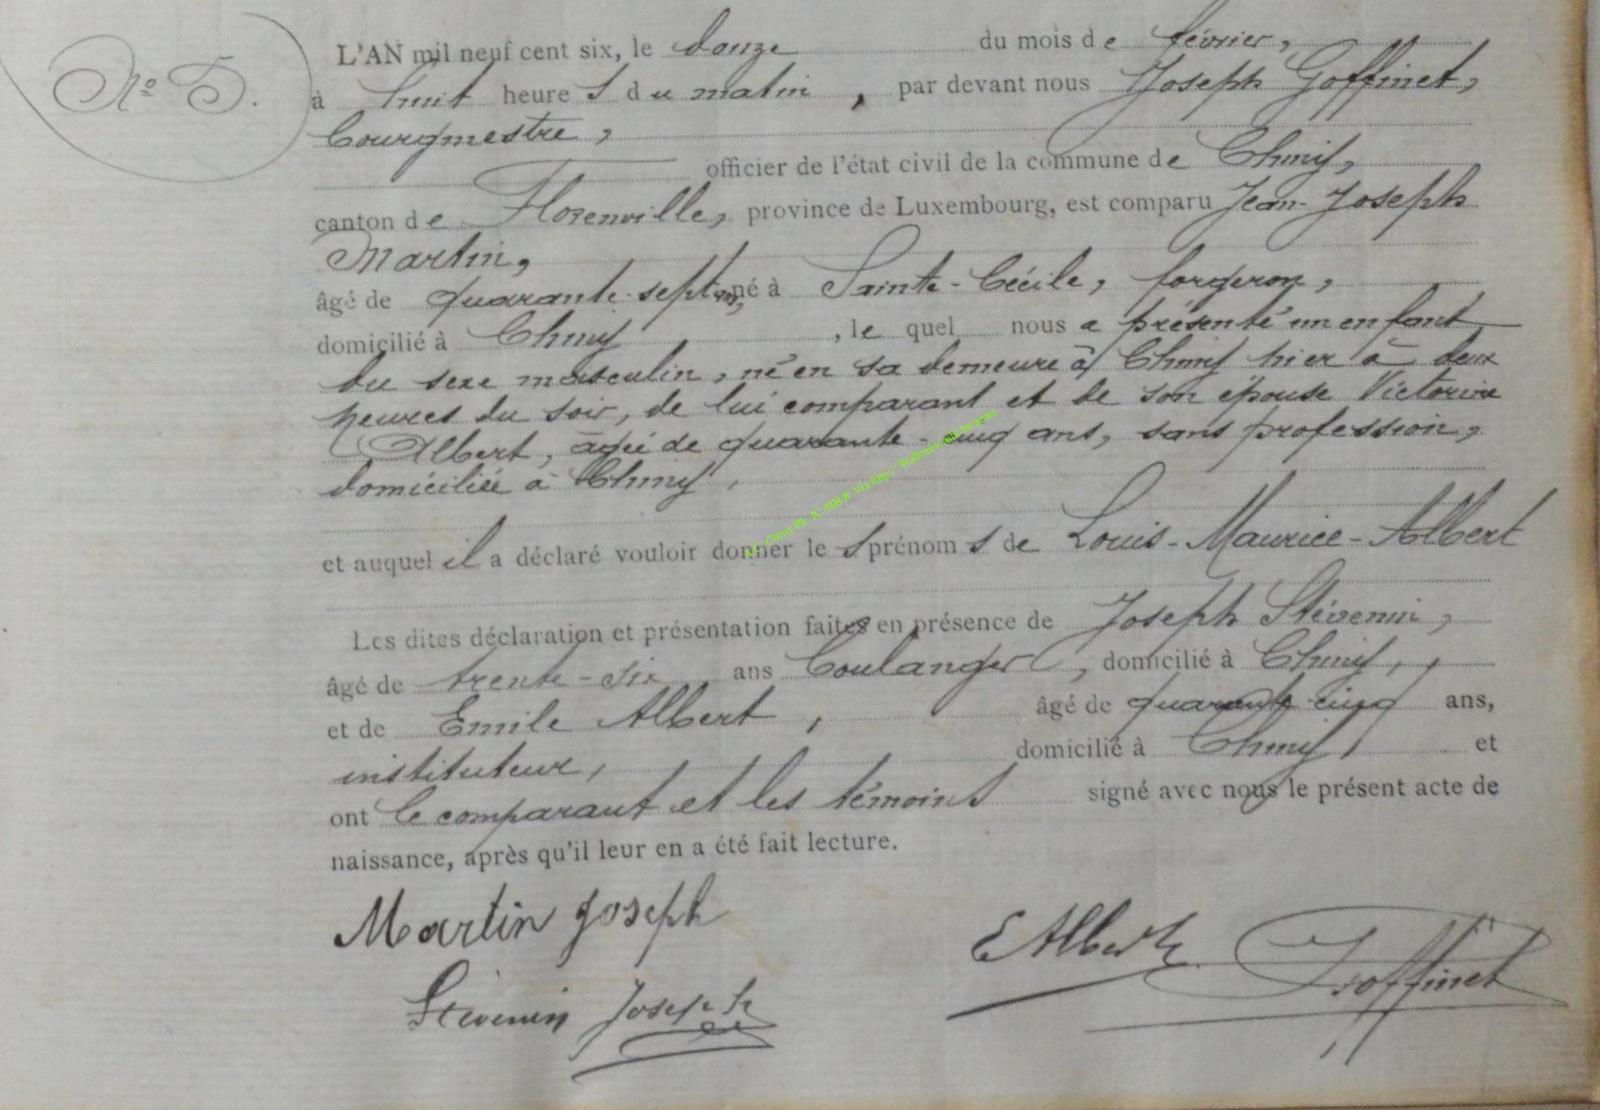 Nº 5.
L'AN mil neuf cent six, le douze du mois de février,
à huit heures du matin, par devant nous Joseph Goffinet,
bourgmestre,
officier de l'état civil de la commune de Chiny,
canton de Florenville, province de Luxembourg, est comparu Jean-Joseph
Martin,
âgé de quarante-sept ans, né à Sainte-Cécile, forgeron,
domicilié à Chiny, lequel nous a présenté un enfant
du sexe masculin, né en sa demeure à Chiny hier à deux
heures du soir, de lui comparant et de son épouse Victorine
Albert, âgée de quarante-cinq ans, sans profession,
domiciliée à Chiny,
et auquel il a déclaré vouloir donner les prénoms de Louis-Maurice-Albert
Les dites déclaration et présentation faites en présence de Joseph Stévenin,
âgé de trente-six ans boulanger, domicilié à Chiny,
et de Emile Albert, âgé de quarante cinq ans,
instituteur, domicilié à Chiny, et
ont le comparant et les témoins signé avec nous le présent acte de
naissance, après qu'il leur en a été fait lecture.
Martin Joseph
EAlbert JGoffinet
Stévenin Joseph